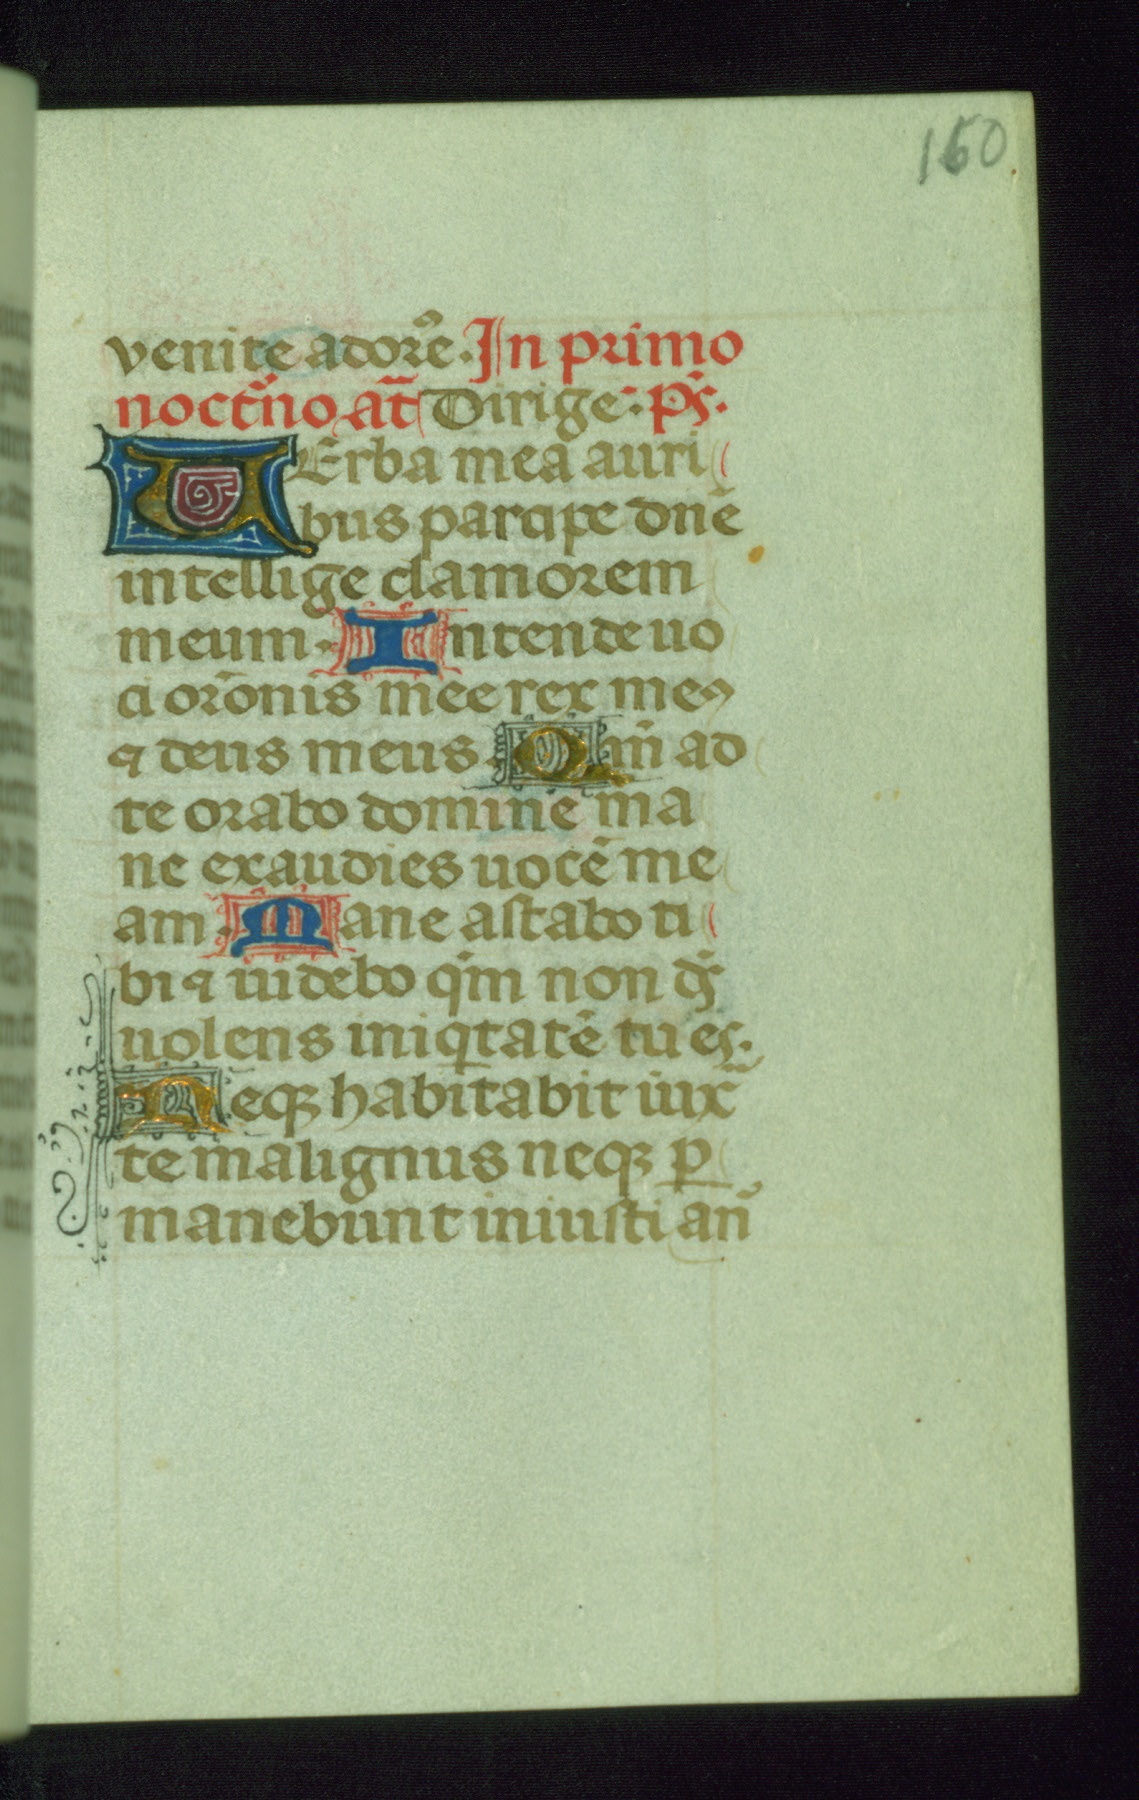 160
venite adorẽ. In primo
noctũno añ Dirige. p̃s.
VErba mea auri
bus percipe dñe
intellige clamorem
meum. Intende uo
ci orõnis mee rex meꝰ
⁊ deus meus. Qm̃ ad
te orabo domine ma
ne exaudies uocẽ me
am. Mane astabo ti
bi ⁊ uidebo qm̃ non ds̃
uolens iniqitatẽ tu es.
Neqꝫ habitabit iuxᷓ
te malignus neqꝫ ꝑ
manebunt iniusti añ